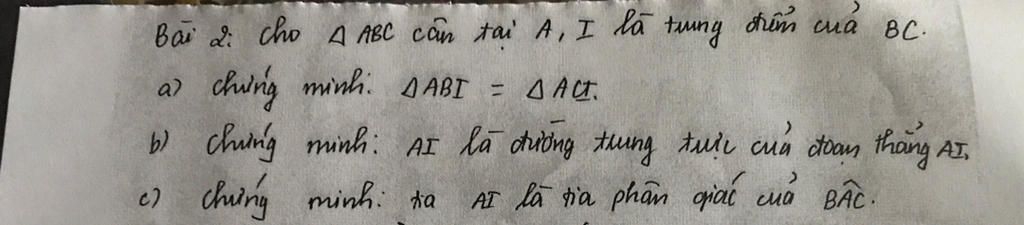 Bài 2: Cho Δ ABC cân tại A, I là trung điểm của BC.
a) Chứng minh: ΔABI = ΔACI.
b) Chứng minh: AI là đường trung trực của đoạn thẳng AI.
c) Chứng minh: tia AI là tia phân giác của BÂC.